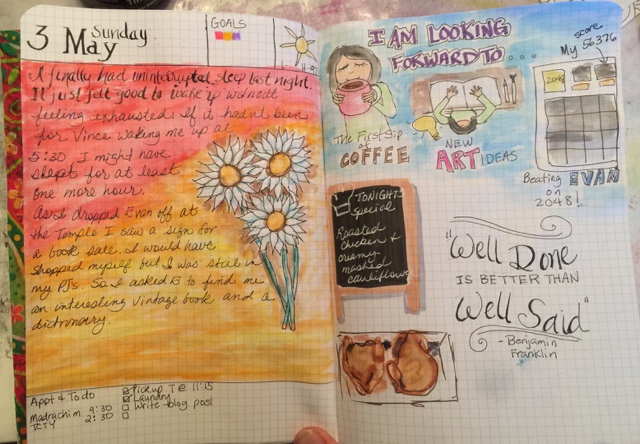 3 Sunday
May
GOALS
I finally had uninterruptal sleep last night.
It just felt good to wake up without
feeling exhausted. If it hadn't been
for Vince waking me up at
5:30 I might have
slept for at least
one more hour.
As I dropped Evan off at
the Temple I saw a sign for
a book sale. I would have
shopped myself but I was still in
my PJs. So I asked E to find me
an interesting vintage book and a
dictionary.
Appt & To do
madrachim 9:30
2:30
Pick up T @ 11:15
Laundry
Write blog post
I AM LOOKING
FORWARD TO...
The First Sip
of
COFFEE
NEW
ART IDEAS
score
My 56376
2048
Beating EVAN
on
2048!
TONIGHTS
Special
Roasted
chicken &
creamy
mashed
cauliflower
"Well Done
IS BETTER THAN
Well Said"
- Benjamin
Franklin